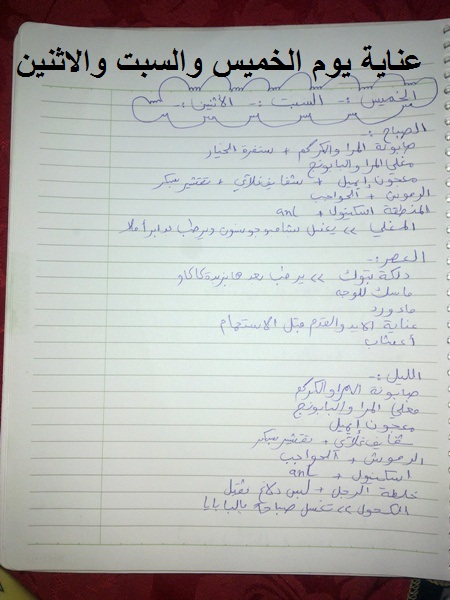 عناية يوم الخميس والسبت والاثنين
الخميس :- السبت :- الاثنين :-
الصباح :-
صابونة المرا والكركم + سنفرة الخيار
مغلي المرا والبابونج
معجون إيميل + شفايف فلاتي + تقشير سكر
الرموش + الحواجب
المنطقة اسكينول + anl
المغلي >> يغسل بشامبو جونسون ويرطب
العصر :-
دلكة بتوك >> يرطب بعدها بزبدة كاكاو
ماسك للوجه
ماء ورد
عناية الايد والقدم قبل الاستحمام
أعشاب
الليل :-
صابونة المرا والكركم
مغلي المرا والبابونج
معجون إيميل
شفايف فلاتي + تقشير سكر
الرموش + الحواجب
اسكينول + anl
خلطة الرجل + لبس دلاغ تقيل
الكحول >> تغسل صباحا بالبابايا